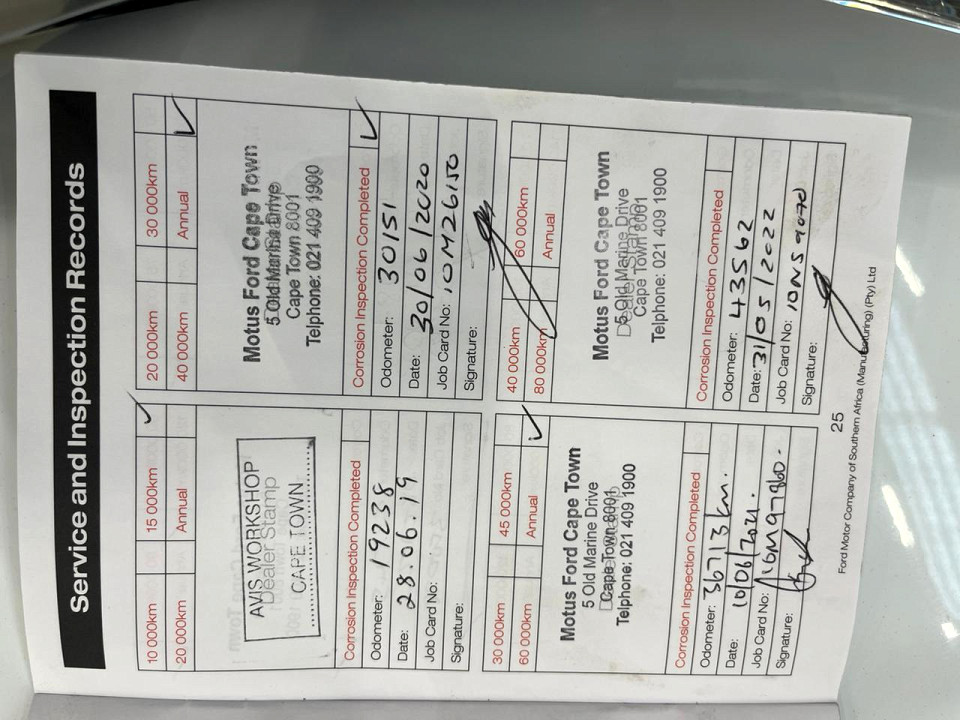 Service and Inspection Records
10 000km 15 000km ✓
20 000km Annual
AVIS WORKSHOP
Dealer Stamp
CAPE TOWN
Corrosion Inspection Completed
Odometer: 19238
Date: 28.06.19
Job Card No:
Signature:
20 000km 30 000km
40 000km Annual ✓
Motus Ford Cape Town
5 Old Marine Drive
Cape Town 8001
Telphone: 021 409 1900
Corrosion Inspection Completed ✓
Odometer: 30151
Date: 30/06/2020
Job Card No: 10M26150
Signature:
30 000km 45 000km
60 000km Annual ✓
Motus Ford Cape Town
5 Old Marine Drive
Cape Town 8001
Telphone: 021 409 1900
Corrosion Inspection Completed
Odometer: 36713km.
Date: 10/06/2021.
Job Card No:
Signature:
40 000km 60 000km
80 000km Annual
Motus Ford Cape Town
5 Old Marine Drive
Dealer Stamp
Cape Town 8001
Telphone: 021 409 1900
Corrosion Inspection Completed
Odometer: 43562
Date: 31/05/2022
Job Card No: 10NS9070
Signature:
25
Ford Motor Company of Southern Africa (Manufacturing) (Pty) Ltd